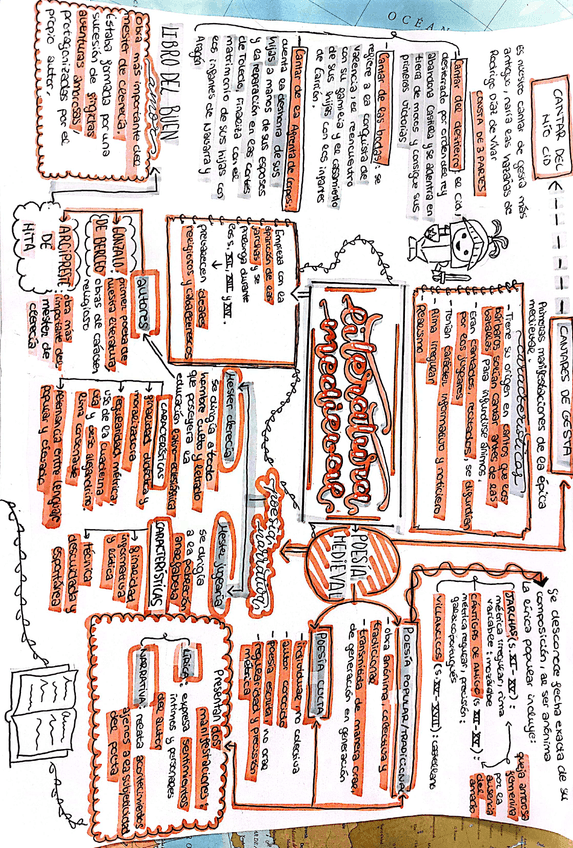 Literatura
medieval
POESÍA
MEDIEVAL
CANTARES DE GESTA
Primeras manifestaciones de la épica
medieval.
características
- Tiene su origen en cantos que los
bárbaros solían cantar antes de las
batallas para infundirse ánimos.
- Eran cantados, recitados, se difundían
por los juglares
- Tenía carácter informativo y noticiero
- Rima irregular
- Realismo
CANTAR DEL
MÍO CID
Es nuestro cantar de gesta más
antiguo, narra las hazañas de
Rodrigo Díaz de Vivar
CONSTA DE 3 PARTES
Cantar del destierro: el Cid,
desterrado por orden del rey
abandona Castilla y se adentra en
tierra de moros y consigue sus
primeras victorias
Cantar de las bodas: se
refiere a la conquista de
Valencia, el reencuentro
con su familia y el casamiento
de sus hijas con los infantes
de Carrión.
Cantar de la Afrenta de Corpes:
cuenta la deshonra de sus
hijas a manos de sus esposos
y la reparación en las cortes
de Toledo, finaliza con el
matrimonio de sus hijas con
los infantes de Navarra y
Aragón
Se desconoce fecha exacta de su
composición, al ser anónima
La lírica popular incluye:
JARCHAS (S. XI - XIV):
métrica irregular, rima
variable: mozárabe
CANTIGAS DE AMIGO (S. XII - XIV):
métrica regular, precisión:
galaicoportugués
VILLANCICOS (S. XV - XVII): castellano
queja amorosa
femenina
por la
ausencia
del
amado
POESÍA POPULAR/TRADICIONAL
- obra anónima, colectiva y
tradicional
- transmitida de manera oral
de generación en generación
POESÍA CULTA
- individual, no colectiva
- autor conocido
- poesía escrita, no oral
- regularidad y precisión
métrica
Presentan dos
manifestaciones
LÍRICA: expresa sentimientos
íntimos y personales
del autor
NARRATIVA: relata acontecimientos
ajenos a la subjetividad
del poeta
Poesía narrativa
Empieza con la
aparición de las
jarchas y se
prolonga durante
los s. XII, XIII, XIV y XV.
prevalecen ideales
religiosos y caballerescos
Mester clerecía
se dirigía a todo
hombre culto y letrado
que poseyera la
educación
CARACTERÍSTICAS
finalidad didáctica y
moralizadora
regularidad métrica
uso de la cuaderna
vía y verso alejandrino
rima consonante
alternancia entre lenguaje
popular y elevado
Mester juglaría
se dirigía
a la población
analfabeta
CARACTERÍSTICAS
finalidad
informativa
y lúdica
métrica
descuidada y
espontánea
autores
GONZALO
DE BERCEO
primer poeta de
nuestra literatura,
obras de carácter
religioso
ARCIPRESTE
DE
HITA
obra más
importante del
mester de
clerecía
LIBRO DEL BUEN
amor
obra más importante del
mester de clerecía
Estaba formada por una
sucesión de fingidas
aventuras amorosas
protagonizadas por el
propio autor.
OCÉAN